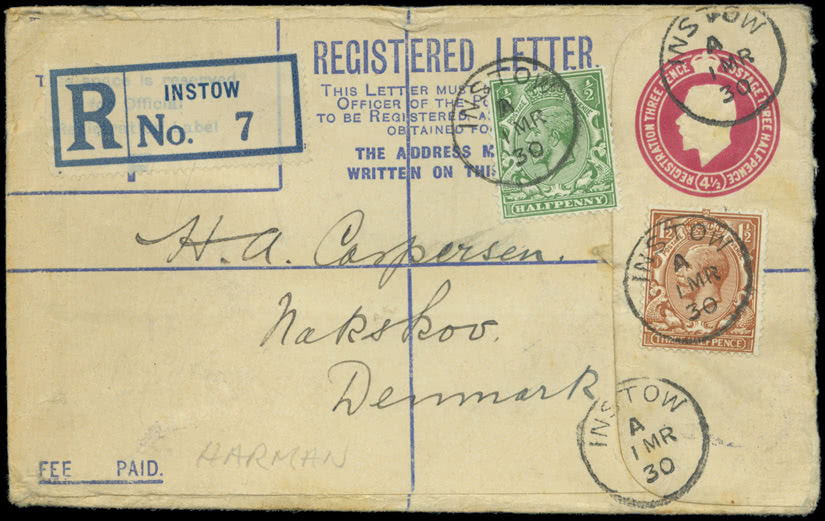 REGISTERED LETTER.
THIS LETTER MUST
OFFICER OF THE PO
TO BE REGISTERED, A
OBTAINED FO
THE ADDRESS M
WRITTEN ON THIS
space is reserved
Official
Label
R INSTOW
No. 7
INSTOW
A
1 MR
30
½ ½
HALFPENNY
INSTOW
A
1 MR
30
REGISTRATION THREE PENCE POSTAGE THREE HALFPENCE
(4½)
H. A. Caspersen.
Nakskov.
Denmark
INSTOW
A
1 MR
30
1½ 1½
THREE HALFPENCE
INSTOW
A
1 MR
30
FEE PAID.
HARMAN